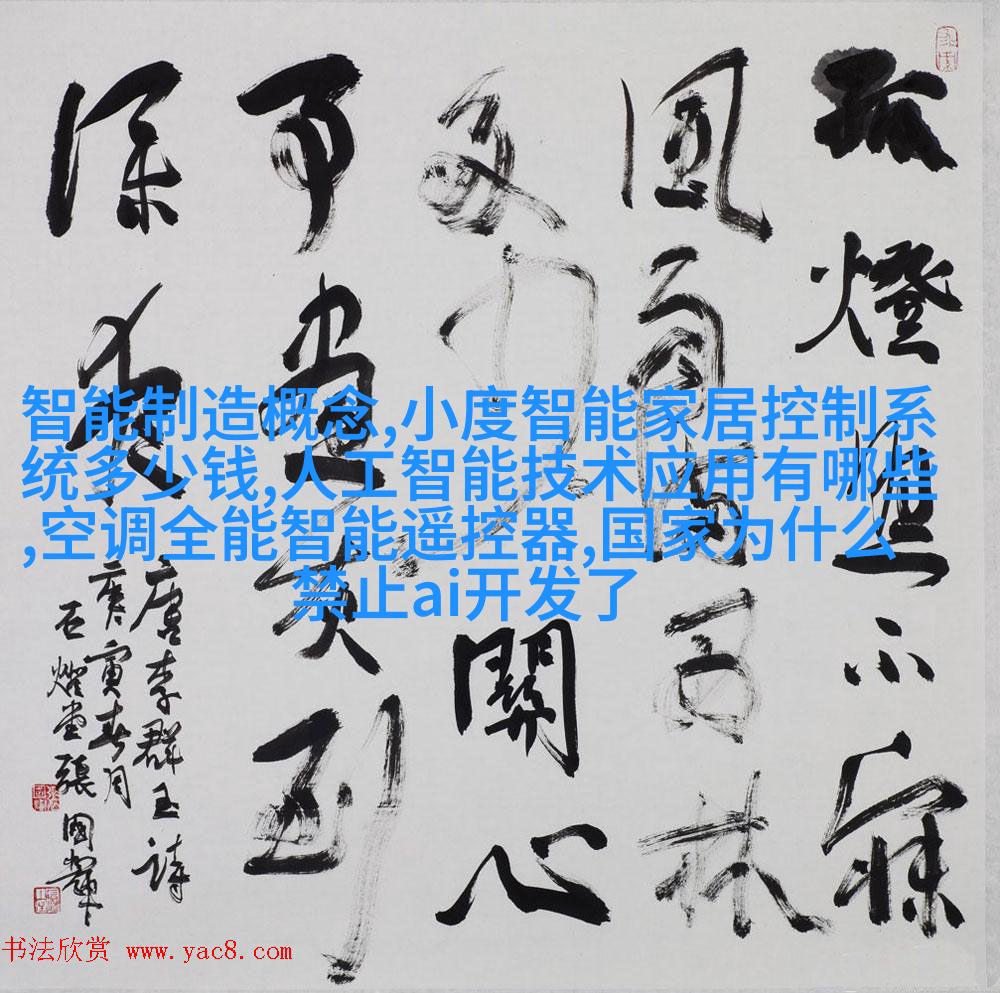 孤燈照不寐
風雨滿西林
多少關心
事畫灰到
深夜
唐李群玉詩
庚寅春月
張國輝
智能制造概念,小度智能家居控制系
统多少钱,人工智能技术应用有哪些
,空调全能智能遥控器,国家为什么
禁止ai开发了
书法欣赏 www.yac8.com